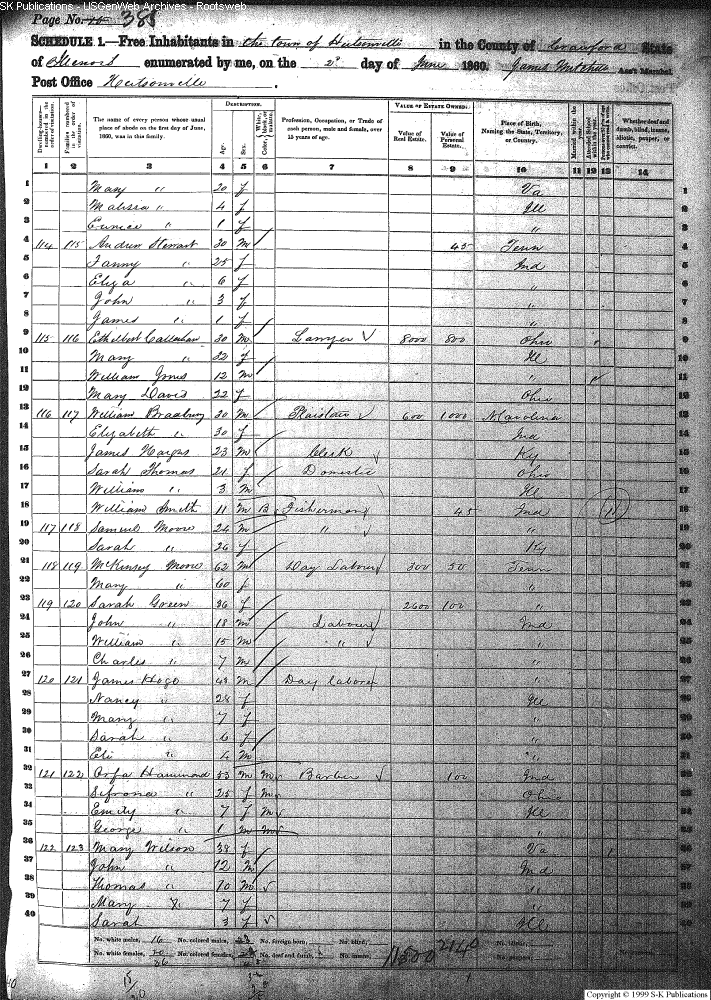 SK Publications - USGenWeb Archives - Rootsweb
Page No. 385
SCHEDULE 1.—Free Inhabitants in the town of Hutsonville in the County of Crawford State
of Illinois enumerated by me, on the 2d day of June 1860. James Mitchell Ass't Marshal
Post Office Hutsonville.
Dwelling-houses—numbered in the order of visitation.
Families numbered in the order of visitation.
The name of every person whose usual place of abode on the first day of June, 1860, was in this family.
DESCRIPTION.
Age.
Sex.
Color, White, black, or mulatto.
Profession, Occupation, or Trade of each person, male and female, over 15 years of age.
VALUE OF ESTATE OWNED.
Value of Real Estate.
Value of Personal Estate.
Place of Birth, Naming the State, Territory, or Country.
Married within the year.
Attended School within the year.
Whether deaf and dumb, blind, insane, idiotic, pauper, or convict.
1 2 3 4 5 6 7 8 9 10 11 12 13 14
1 Mary " 20 f Va 1
2 Malissa " 4 f Ill 2
3 Eunice " 1 f " 3
4 114 115 Andrew Stewart 30 m 45 Tenn 4
5 Fanny " 25 f Ind 5
6 Eliza " 6 f " 6
7 John " 3 f " 7
8 James " 1 f " 8
9 115 116 Ethelbert Callahan 30 m Lawyer 8000 800 Ohio 9
10 Mary " 32 f Ill 10
11 William Jones 12 m " 11
12 Mary Davis 22 f Ohio 12
13 116 117 William Bradbury 30 m Plaistair 600 1000 N Carolina 13
14 Elizabeth " 30 f Ind 14
15 James Harges 23 m Clerk Ky 15
16 Sarah Thomas 21 f Domestic Ohio 16
17 William " 3 m Ill 17
18 William Smith 11 m B Fisherman 45 Ind 18
19 117 118 Samuel Moore 24 m " " 19
20 Sarah " 26 f Ky 20
21 118 119 McKinsey Moore 62 m Day Labour 300 50 Tenn 21
22 Mary " 60 f " 22
23 119 120 Sarah Green 36 f 2600 100 " 23
24 John " 18 m Labour Ind 24
25 William " 15 m " " 25
26 Charles " 7 m " 26
27 120 121 James Hogo 48 m Day labour " 27
28 Nancy " 28 f Ill 28
29 Mary " 7 f " 29
30 Sarah " 6 f " 30
31 Eli " 4 m " 31
32 121 122 Orfa Hammond 53 m m Barber 100 Ind 32
33 Sifrona " 25 f m Ohio 33
34 Emily " 7 f m Ill 34
35 George " 1 m m " 35
36 122 123 Mary Wilson 38 f Va 36
37 John " 12 m Ind 37
38 Thomas " 10 m " 38
39 Mary " 7 f " 39
40 Sarah 3 f Ill 40
No. white males, 16 No. colored males, No. foreign born, No. blind, 11500 2140
No. white females, 20 No. colored females, No. deaf and dumb, No. insane,
Copyright © 1999 S-K Publications